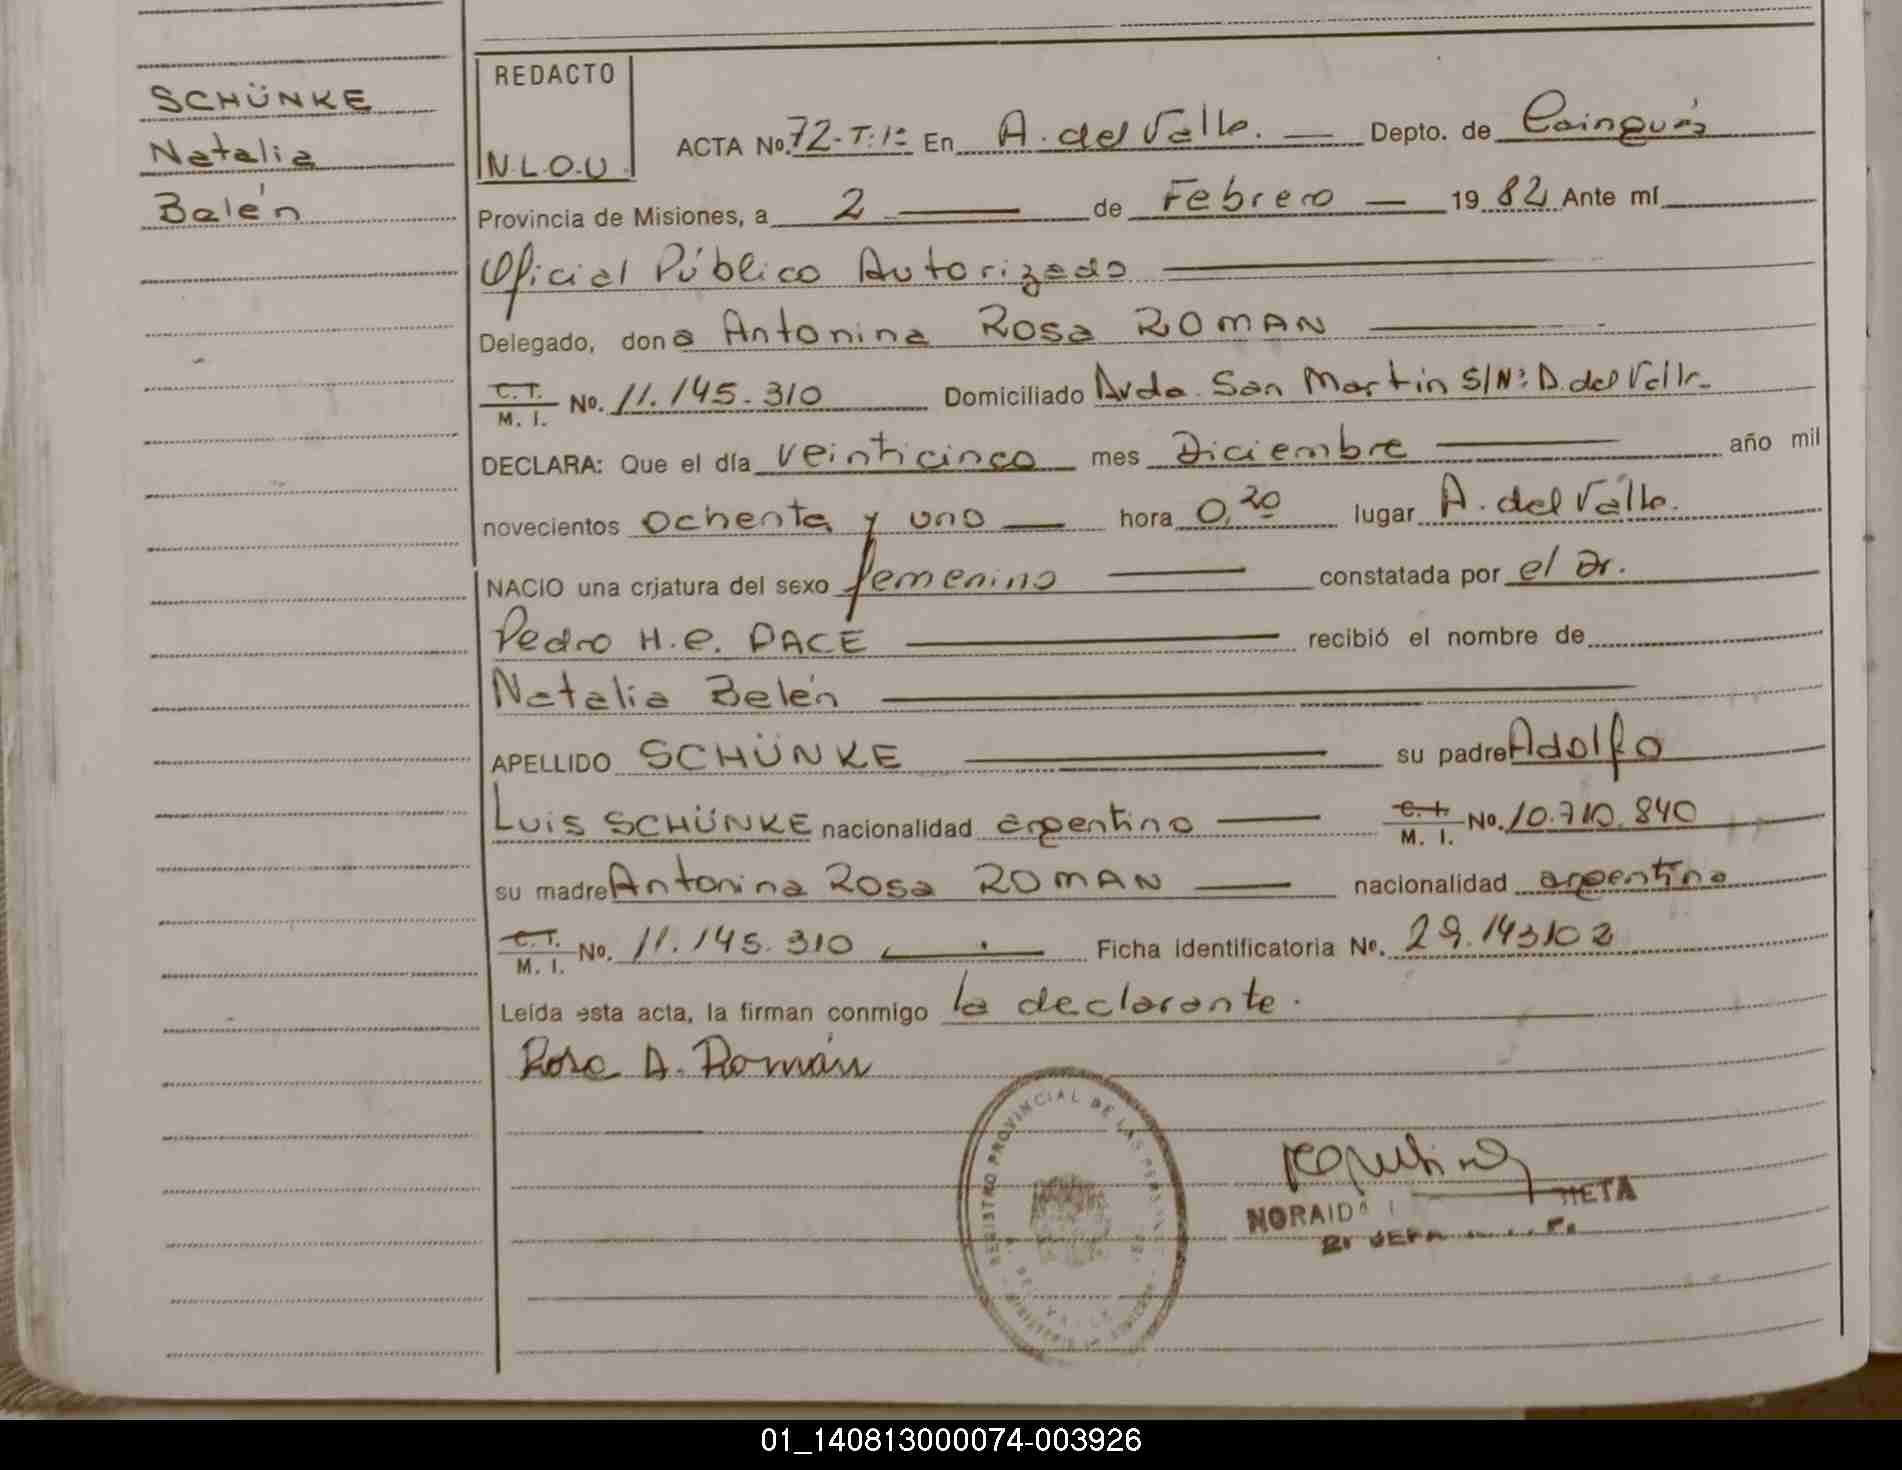 SCHÜNKE
Natalia
Belén
REDACTO
N.L.O.U.
ACTA No. 72-T:1º En A. del Valle. Depto. de Cainguás
Provincia de Misiones, a 2 de Febrero 1982 Ante mí
Oficial Público Autorizado
Delegado, dona Antonina Rosa ROMAN
C.T. M. I. No. 11.145.310 Domiciliado Avda. San Martin S/Nº: A. del Valle.
DECLARA: Que el día veinticinco mes Diciembre año mil
novecientos ochenta y uno hora 0,20 lugar A. del Valle.
NACIO una criatura del sexo femenino constatada por el Dr.
Pedro H.C. PACE recibió el nombre de
Natalia Belén
APELLIDO SCHÜNKE su padre Adolfo
Luis SCHÜNKE nacionalidad argentino C.T. M. I. No. 10.710.840
su madre Antonina Rosa ROMAN nacionalidad argentina
C.T. M. I. No. 11.145.310 Ficha identificatoria No. 29.143102
Leída esta acta, la firman conmigo la declarante.
Rosa A. Román
REGISTRO PROVINCIAL DE LAS PERSONAS
NORAIDA
01_140813000074-003926